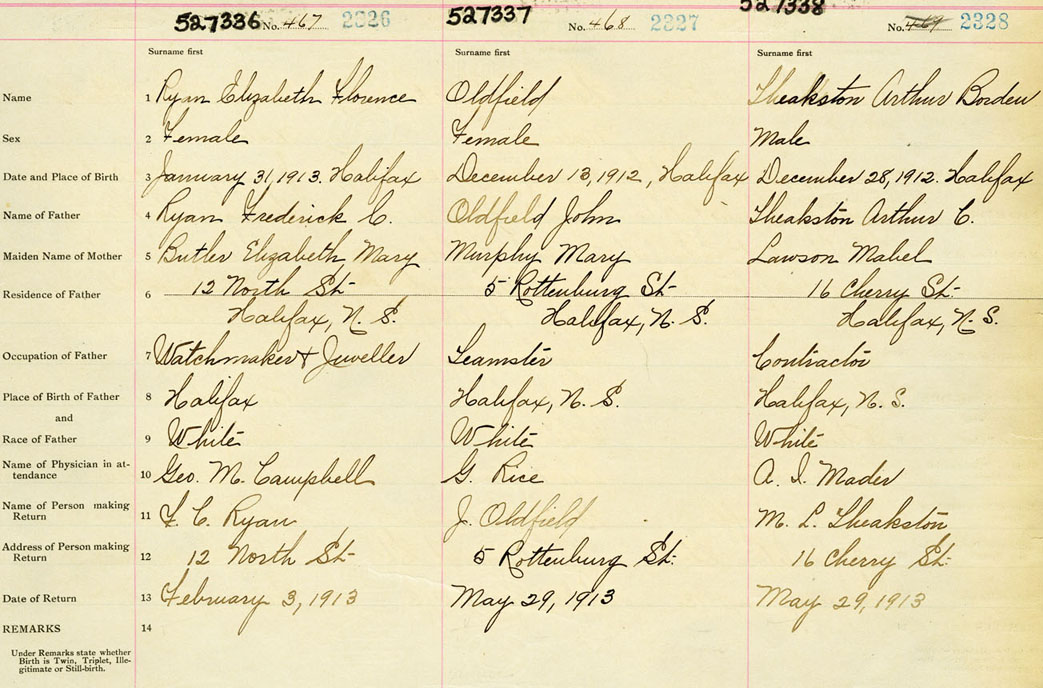 527336 No. 467 2326 527337 No. 468 2327 527338 No. 469 2328
Surname first Surname first Surname first
Name 1 Ryan Elizabeth Florence Oldfield Theakston Arthur Borden
Sex 2 Female Female Male
Date and Place of Birth 3 January 31, 1913. Halifax December 13, 1912, Halifax December 28, 1912. Halifax
Name of Father 4 Ryan Frederick C. Oldfield John Theakston Arthur C.
Maiden Name of Mother 5 Butler Elizabeth Mary Murphy Mary Lawson Mabel
Residence of Father 6 12 North St. 5 Rottenburg St. 16 Cherry St.
Halifax, N. S. Halifax, N. S. Halifax, N. S.
Occupation of Father 7 Watchmaker & Jeweller Teamster Contractor
Place of Birth of Father 8 Halifax Halifax, N. S. Halifax, N. S.
and
Race of Father 9 White White White
Name of Physician in at-
tendance 10 Geo. M. Campbell G. Rice A. I. Mader
Name of Person making
Return 11 F. C. Ryan J. Oldfield M. L. Theakston
Address of Person making
Return 12 12 North St. 5 Rottenburg St. 16 Cherry St.
Date of Return 13 February 3, 1913 May 29, 1913 May 29, 1913
REMARKS 14
Under Remarks state whether
Birth is Twin, Triplet, Ille-
gitimate or Still-birth.